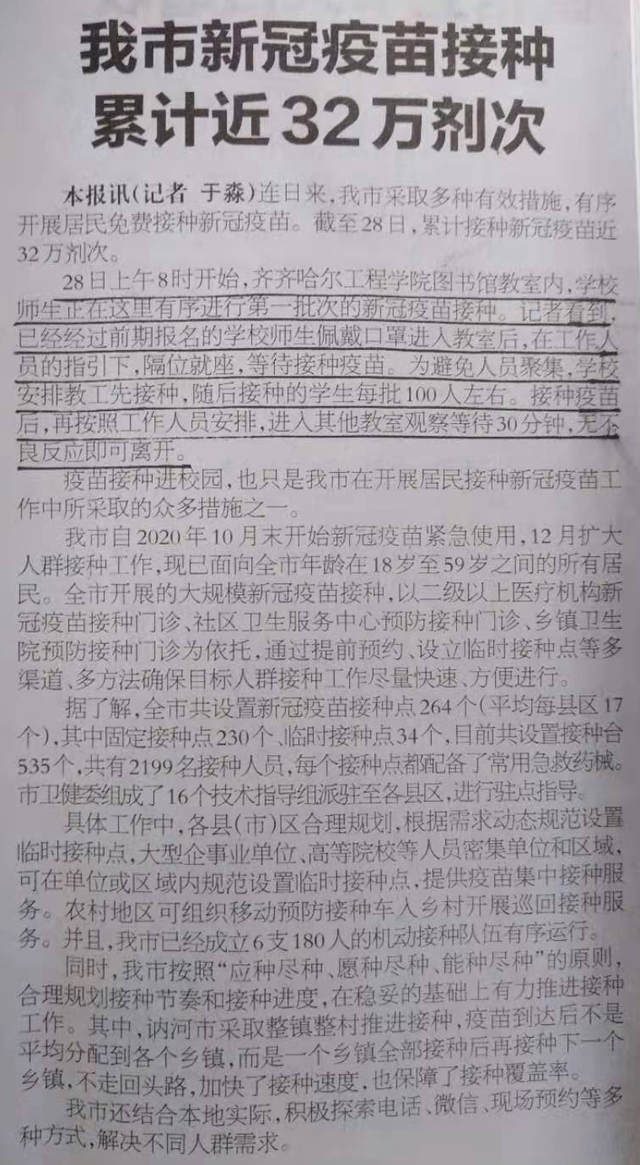 我市新冠疫苗接种
累计近32万剂次
本报讯(记者 于淼)连日来,我市采取多种有效措施,有序
开展居民免费接种新冠疫苗。截至28日,累计接种新冠疫苗近
32万剂次。
28日上午8时开始,齐齐哈尔工程学院图书馆教室内,学校
师生正在这里有序进行第一批次的新冠疫苗接种。记者看到,
已经经过前期报名的学校师生佩戴口罩进入教室后,在工作人
员的指引下,隔位就座,等待接种疫苗。为避免人员聚集,学校
安排教工先接种,随后接种的学生每批100人左右。接种疫苗
后,再按照工作人员安排,进入其他教室观察等待30分钟,无不
良反应即可离开。
疫苗接种进校园,也只是我市在开展居民接种新冠疫苗工
作中所采取的众多措施之一。
我市自2020年10月末开始新冠疫苗紧急使用,12月扩大
人群接种工作,现已面向全市年龄在18岁至59岁之间的所有居
民。全市开展的大规模新冠疫苗接种,以二级以上医疗机构新
冠疫苗接种门诊、社区卫生服务中心预防接种门诊、乡镇卫生
院预防接种门诊为依托,通过提前预约、设立临时接种点等多
渠道、多方法确保目标人群接种工作尽量快速、方便进行。
据了解,全市共设置新冠疫苗接种点264个(平均每县区17
个),其中固定接种点230个、临时接种点34个,目前共设置接种台
535个,共有2199名接种人员,每个接种点都配备了常用急救药械。
市卫健委组成了16个技术指导组派驻至各县区,进行驻点指导。
具体工作中,各县(市)区合理规划,根据需求动态规范设置
临时接种点,大型企事业单位、高等院校等人员密集单位和区域,
可在单位或区域内规范设置临时接种点,提供疫苗集中接种服
务。农村地区可组织移动预防接种车入乡村开展巡回接种服
务。并且,我市已经成立6支180人的机动接种队伍有序运行。
同时,我市按照“应种尽种、愿种尽种、能种尽种”的原则,
合理规划接种节奏和接种进度,在稳妥的基础上有力推进接种
工作。其中,讷河市采取整镇整村推进接种,疫苗到达后不是
平均分配到各个乡镇,而是一个乡镇全部接种后再接种下一个
乡镇,不走回头路,加快了接种速度,也保障了接种覆盖率。
我市还结合本地实际,积极探索电话、微信、现场预约等多
种方式,解决不同人群需求。